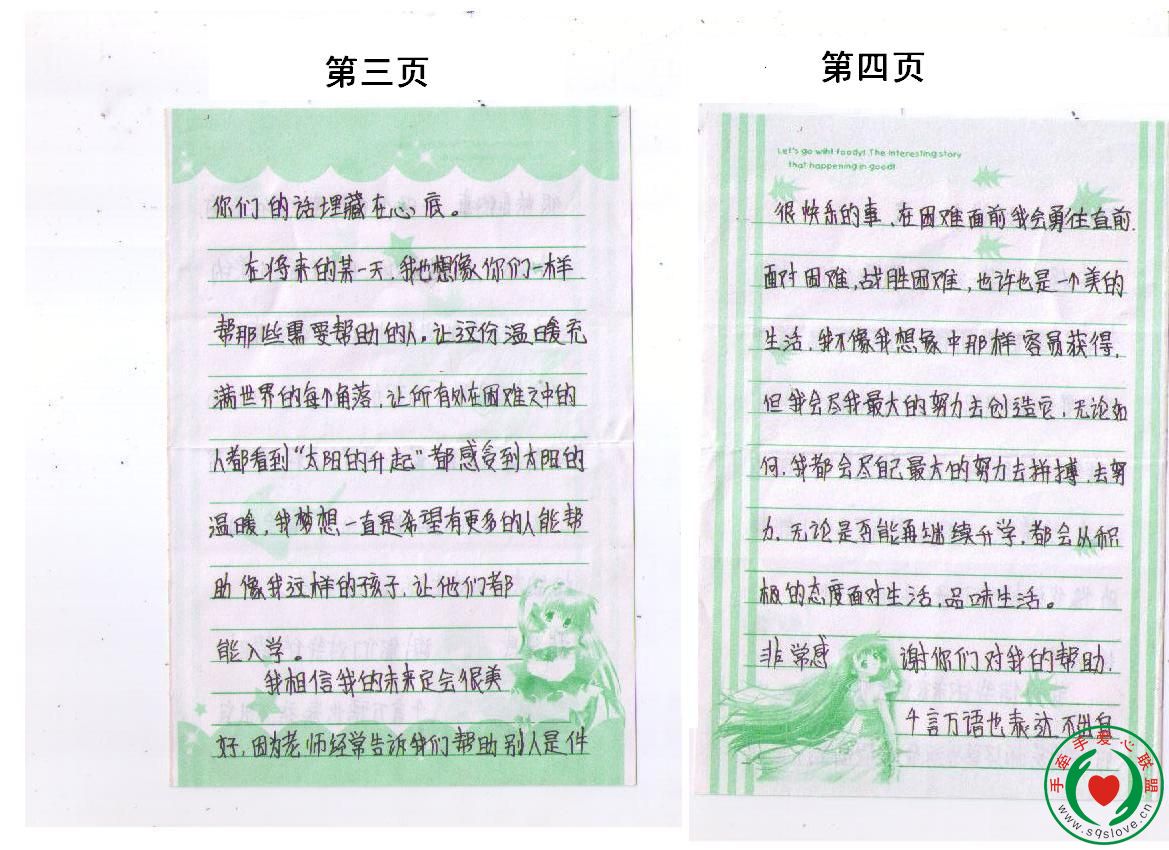 第三页
你们的话埋藏在心底。
在将来的某一天，我也想像你们一样
帮那些需要帮助的人。让这份温暖充
满世界的每个角落，让所有处在困难之中的
人都看到“太阳的升起”都感受到太阳的
温暖，我梦想一直是希望有更多的人能帮
助像我这样的孩子，让他们都
能入学。
我相信我的未来定会很美
好，因为老师经常告诉我们帮助别人是件
第四页
Let's go wiht foody! The interesting story
that happening in good!
很快乐的事、在困难面前我会勇往直前.
面对困难,战胜困难，也许也是一个美的
生活，我不像我想象中那样容易获得,
但我会尽我最大的努力去创造它，无论如
何,我都会尽自己最大的努力去拼搏,去努
力,无论是否能再继续升学，都会从积
极的态度面对生活,品味生活。
非常感谢你们对我的帮助.
千言万语也表达不出自
手牵手爱心联盟
www.sqslove.cn